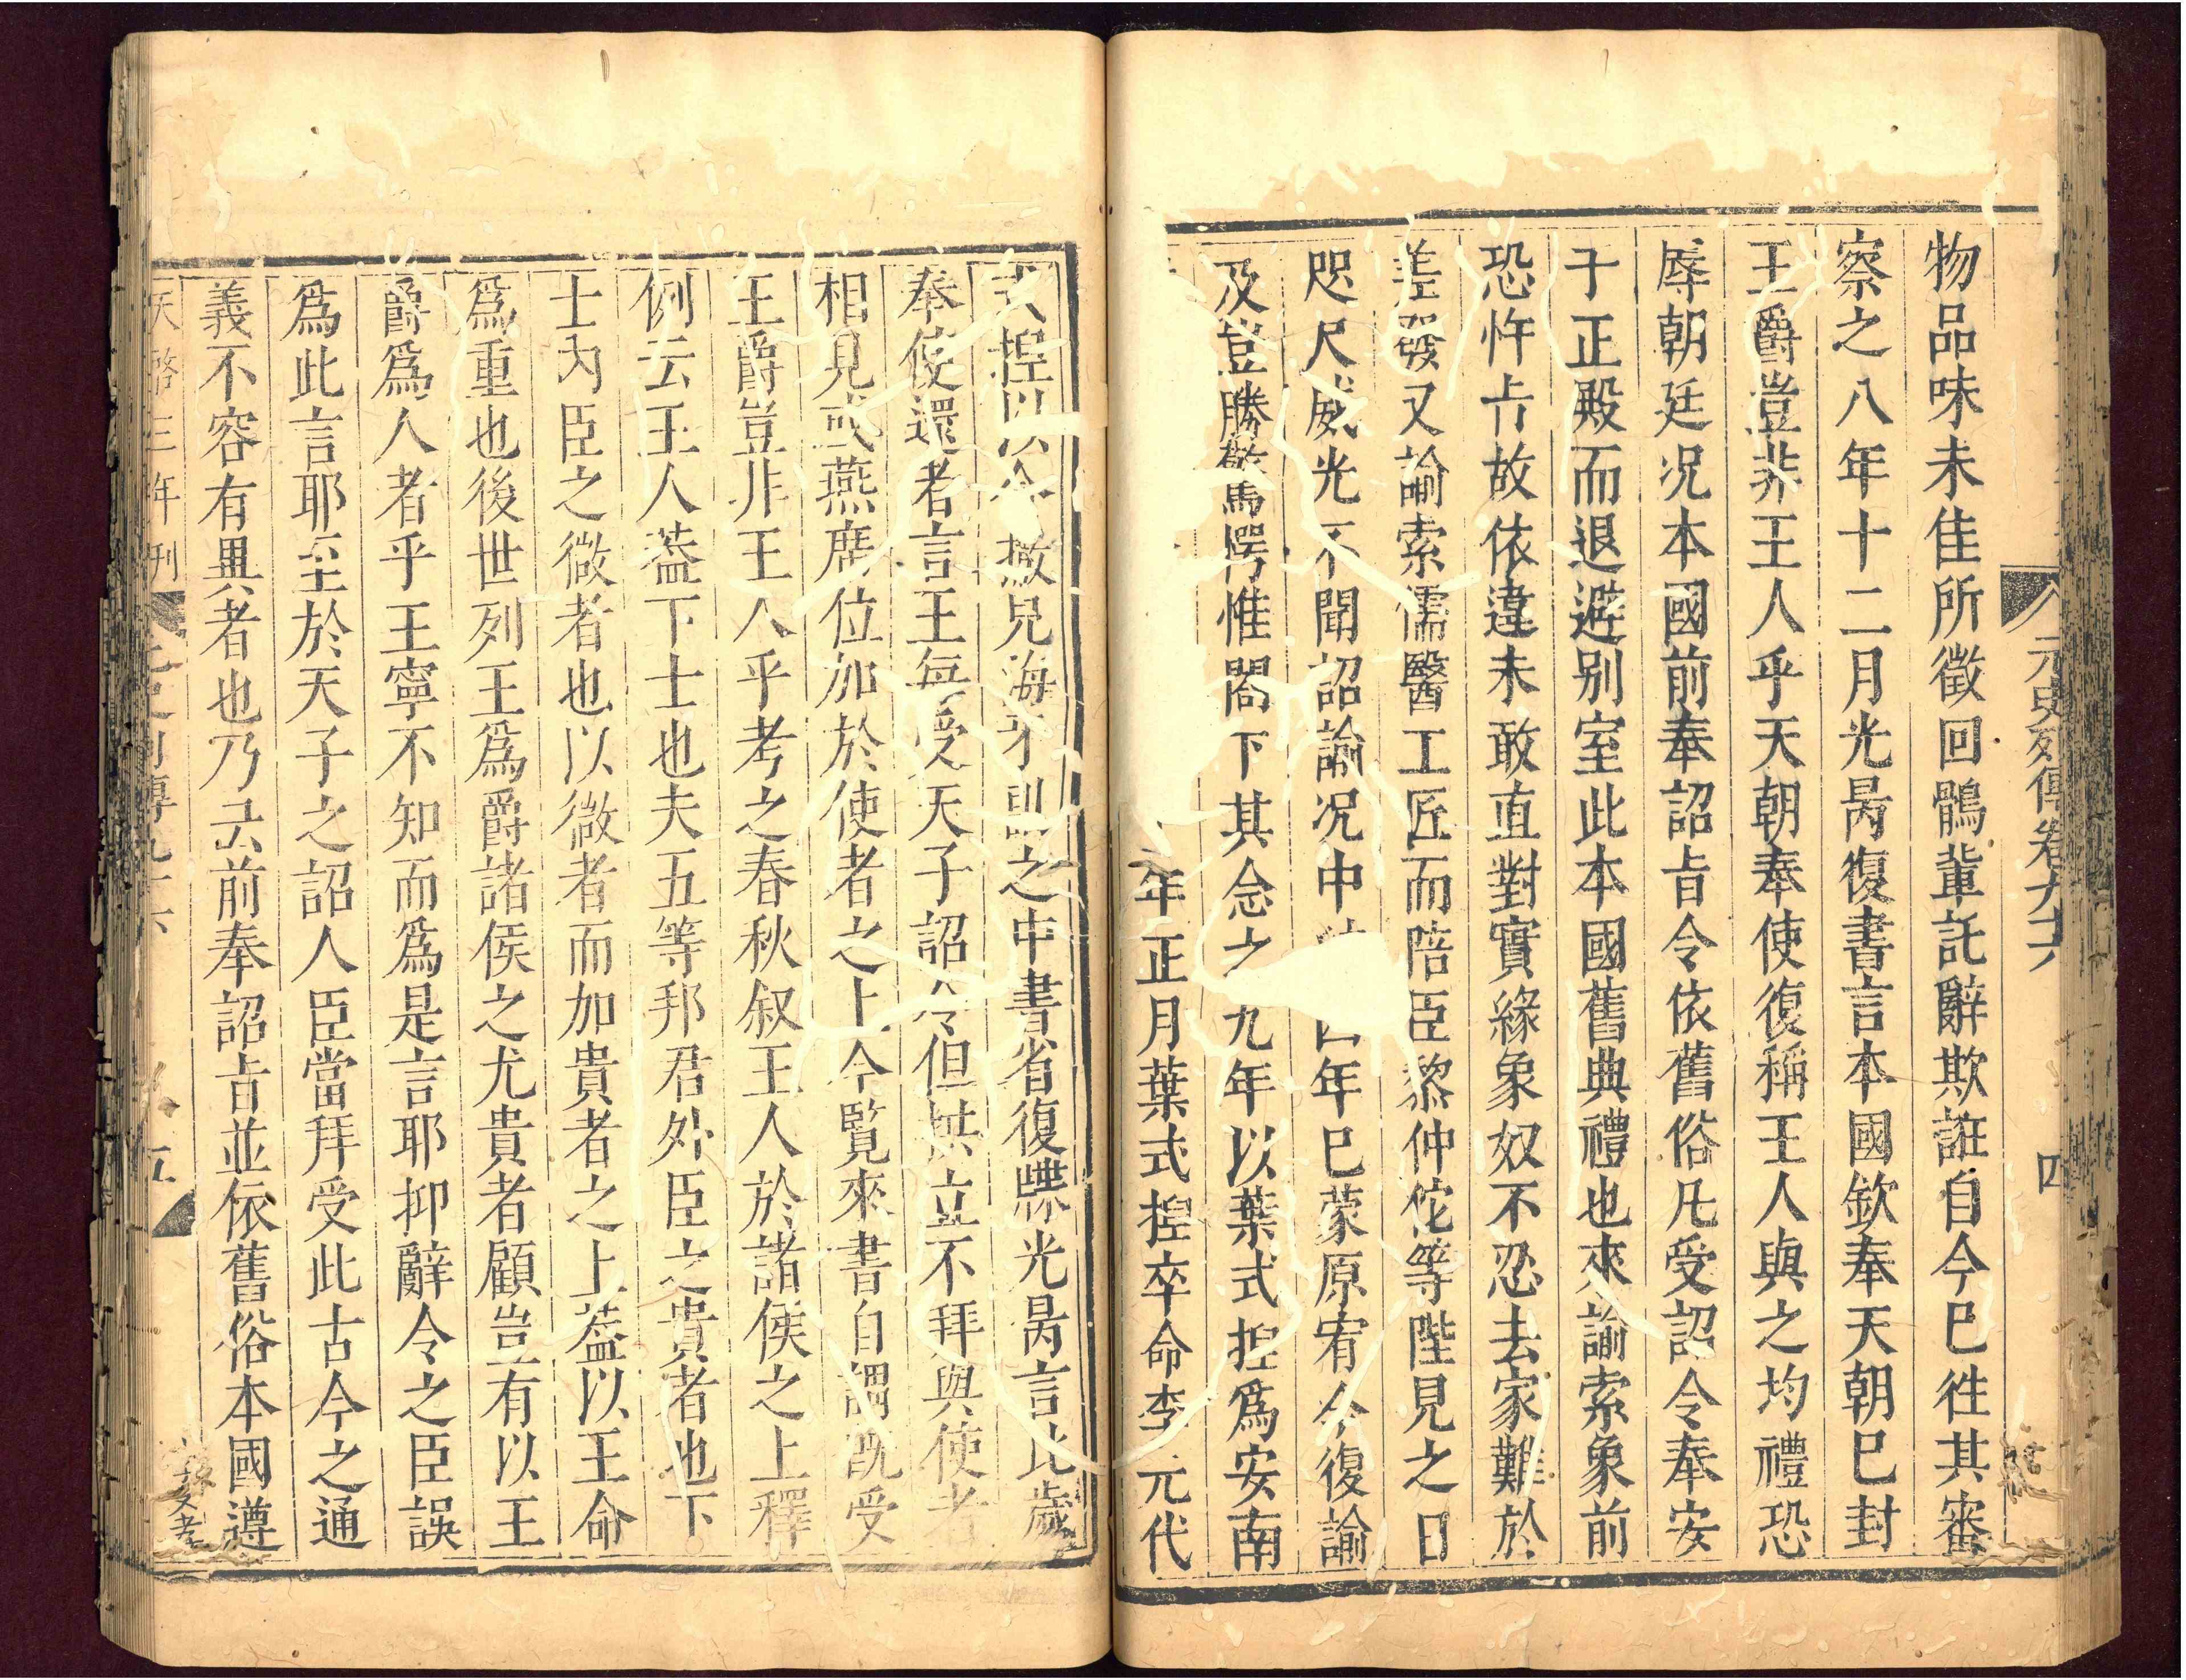 元史列傳卷九十六 四
物品味未佳所徵回鶻輩託辭欺誑自今巳徃其審
察之八年十二月光昺復書言本國欽奉天朝巳封
王爵豈非王人乎天朝奉使復稱王人與之均禮恐
辱朝廷况本國前奉詔旨令依舊俗凡受詔令奉安
于正殿而退避别室此本國舊典禮也來諭索象前
恐忤旨故依違未敢直對實緣象奴不忍去家難於
差發又諭索儒醫工匠而陪臣黎仲佗等陛見之日
咫尺威光不聞詔諭况中四年巳蒙原宥今復諭
及豈勝驚愕惟閣下其念之九年以葉式揑爲安南
年正月葉式揑卒命李元代
式揑以撒兒海牙副之中書省復牒光昺言比歲
奉使還者言王每受天子詔令但拱立不拜與使者
相見或燕席位加於使者之上今覽來書自謂旣受
王爵豈非王人乎考之春秋叙王人於諸侯之上釋
例云王人葢下士也夫五等邦君外臣之貴者也下
士內臣之微者也以微者而加貴者之上葢以王命
爲重也後世列王爲爵諸侯之尤貴者顧豈有以王
爵爲人者乎王寧不知而爲是言耶抑辭令之臣誤
爲此言耶至於天子之詔人臣當拜受此古今之通
義不容有異者也乃云前奉詔旨並依舊俗本國遵
天啓三年刊 元史列傳九十六 五